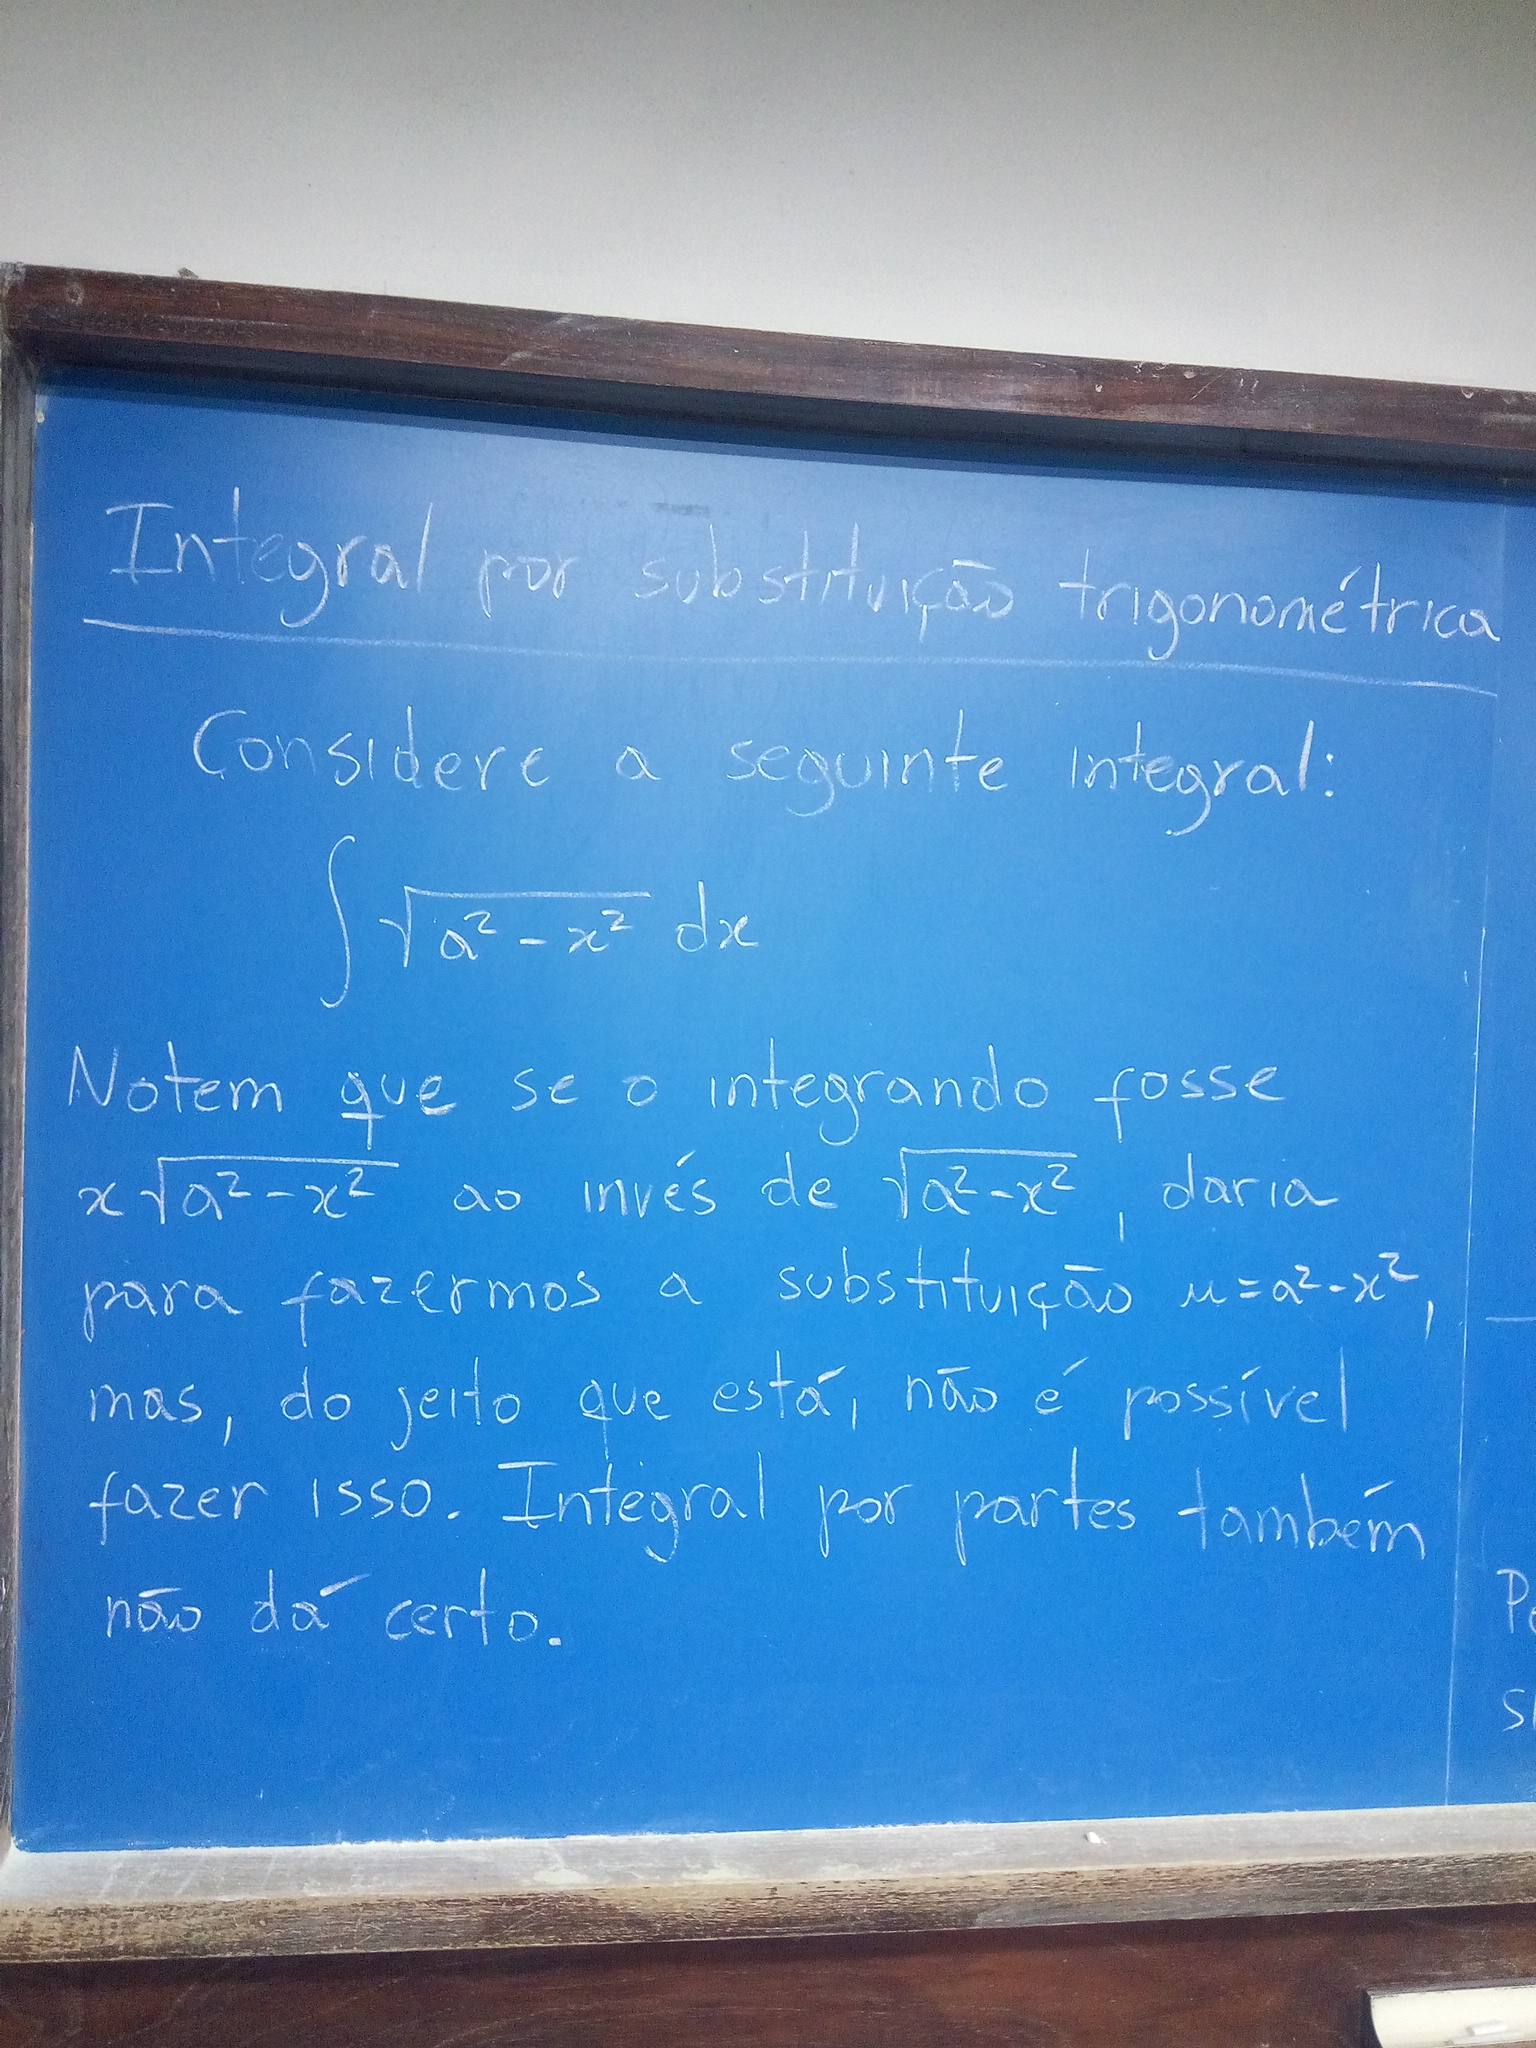 Integral por substituição trigonométrica
Considere a seguinte integral:
∫ √(a² - x²) dx
Notem que se o integrando fosse
x√(a² - x²) ao invés de √(a² - x²), daria
para fazermos a substituição u = a² - x²,
mas, do jeito que está, não é possível
fazer isso. Integral por partes também
não dá certo.